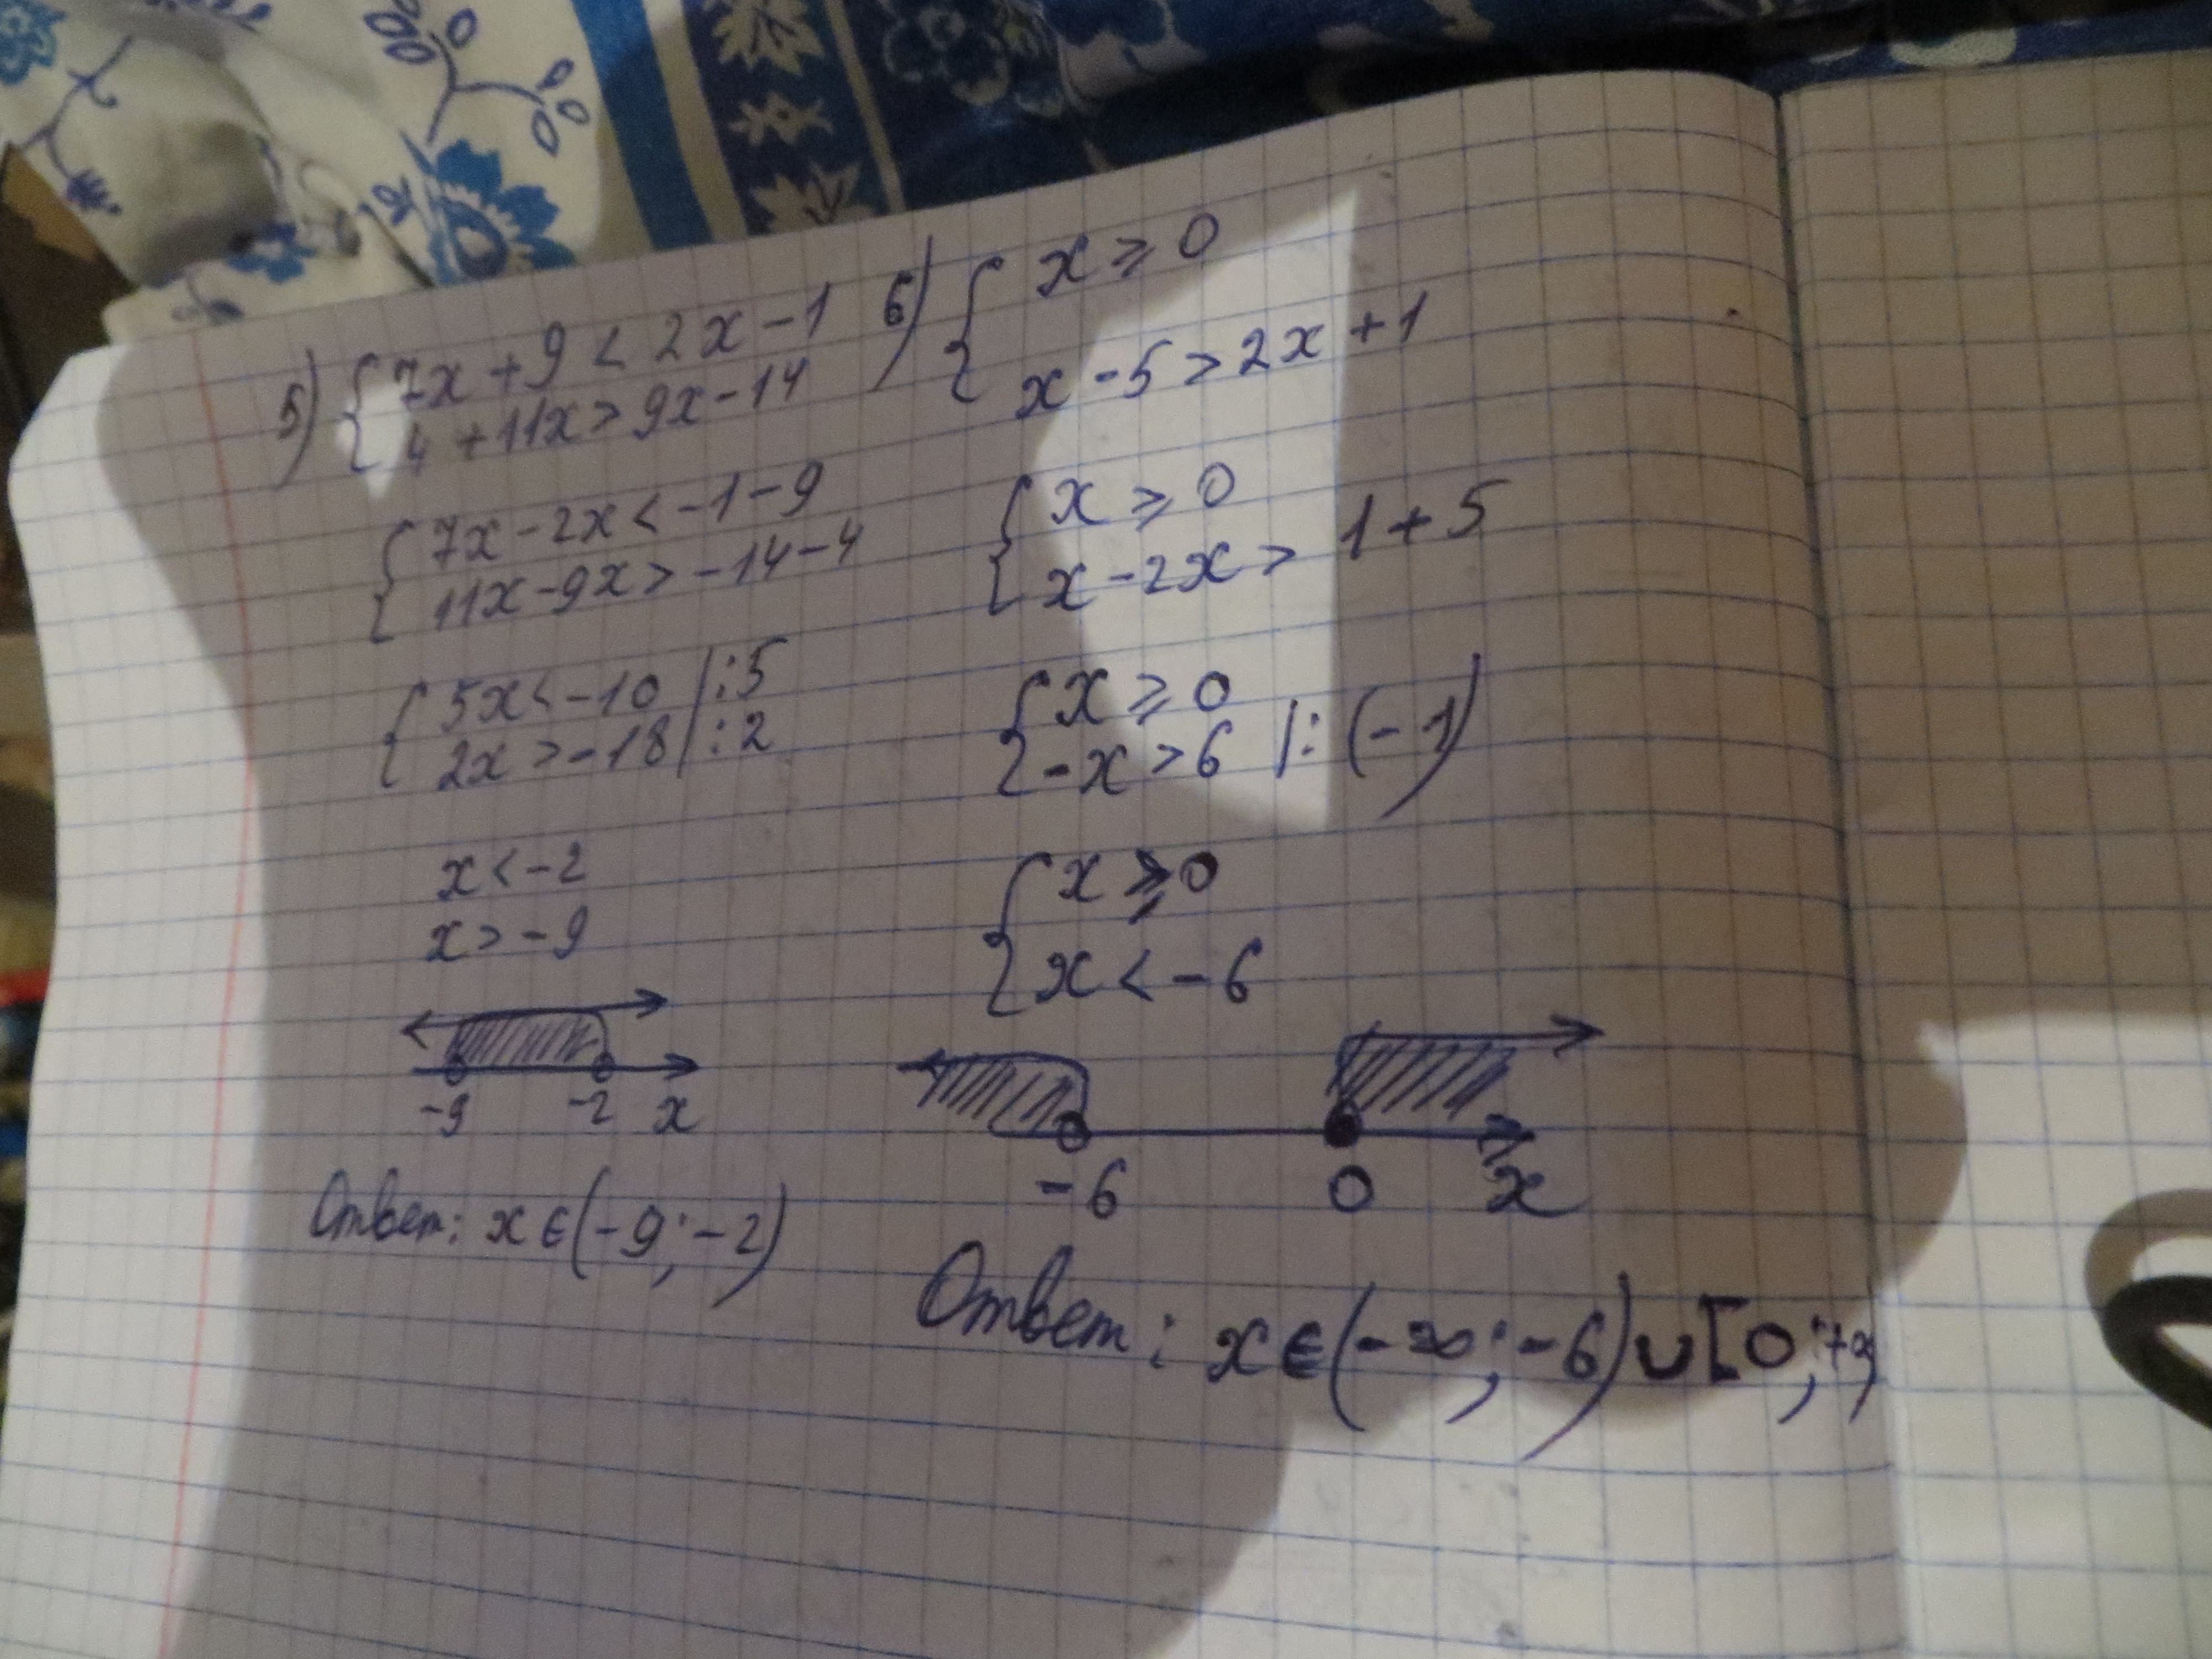 5) { 7x + 9 < 2x - 1
4 + 11x > 9x - 14
{ 7x - 2x < -1 - 9
11x - 9x > -14 - 4
{ 5x < -10 | : 5
2x > -18 | : 2
x < -2
x > -9
-9 -2 x
Ответ: x ∈ (-9; -2)
6) { x ⩾ 0
x - 5 > 2x + 1
{ x ⩾ 0
x - 2x > 1 + 5
{ x ⩾ 0
-x > 6 | : (-1)
{ x ⩾ 0
x < -6
-6 0 x
Ответ: x ∈ (-∞; -6) ∪ [0; +∞)